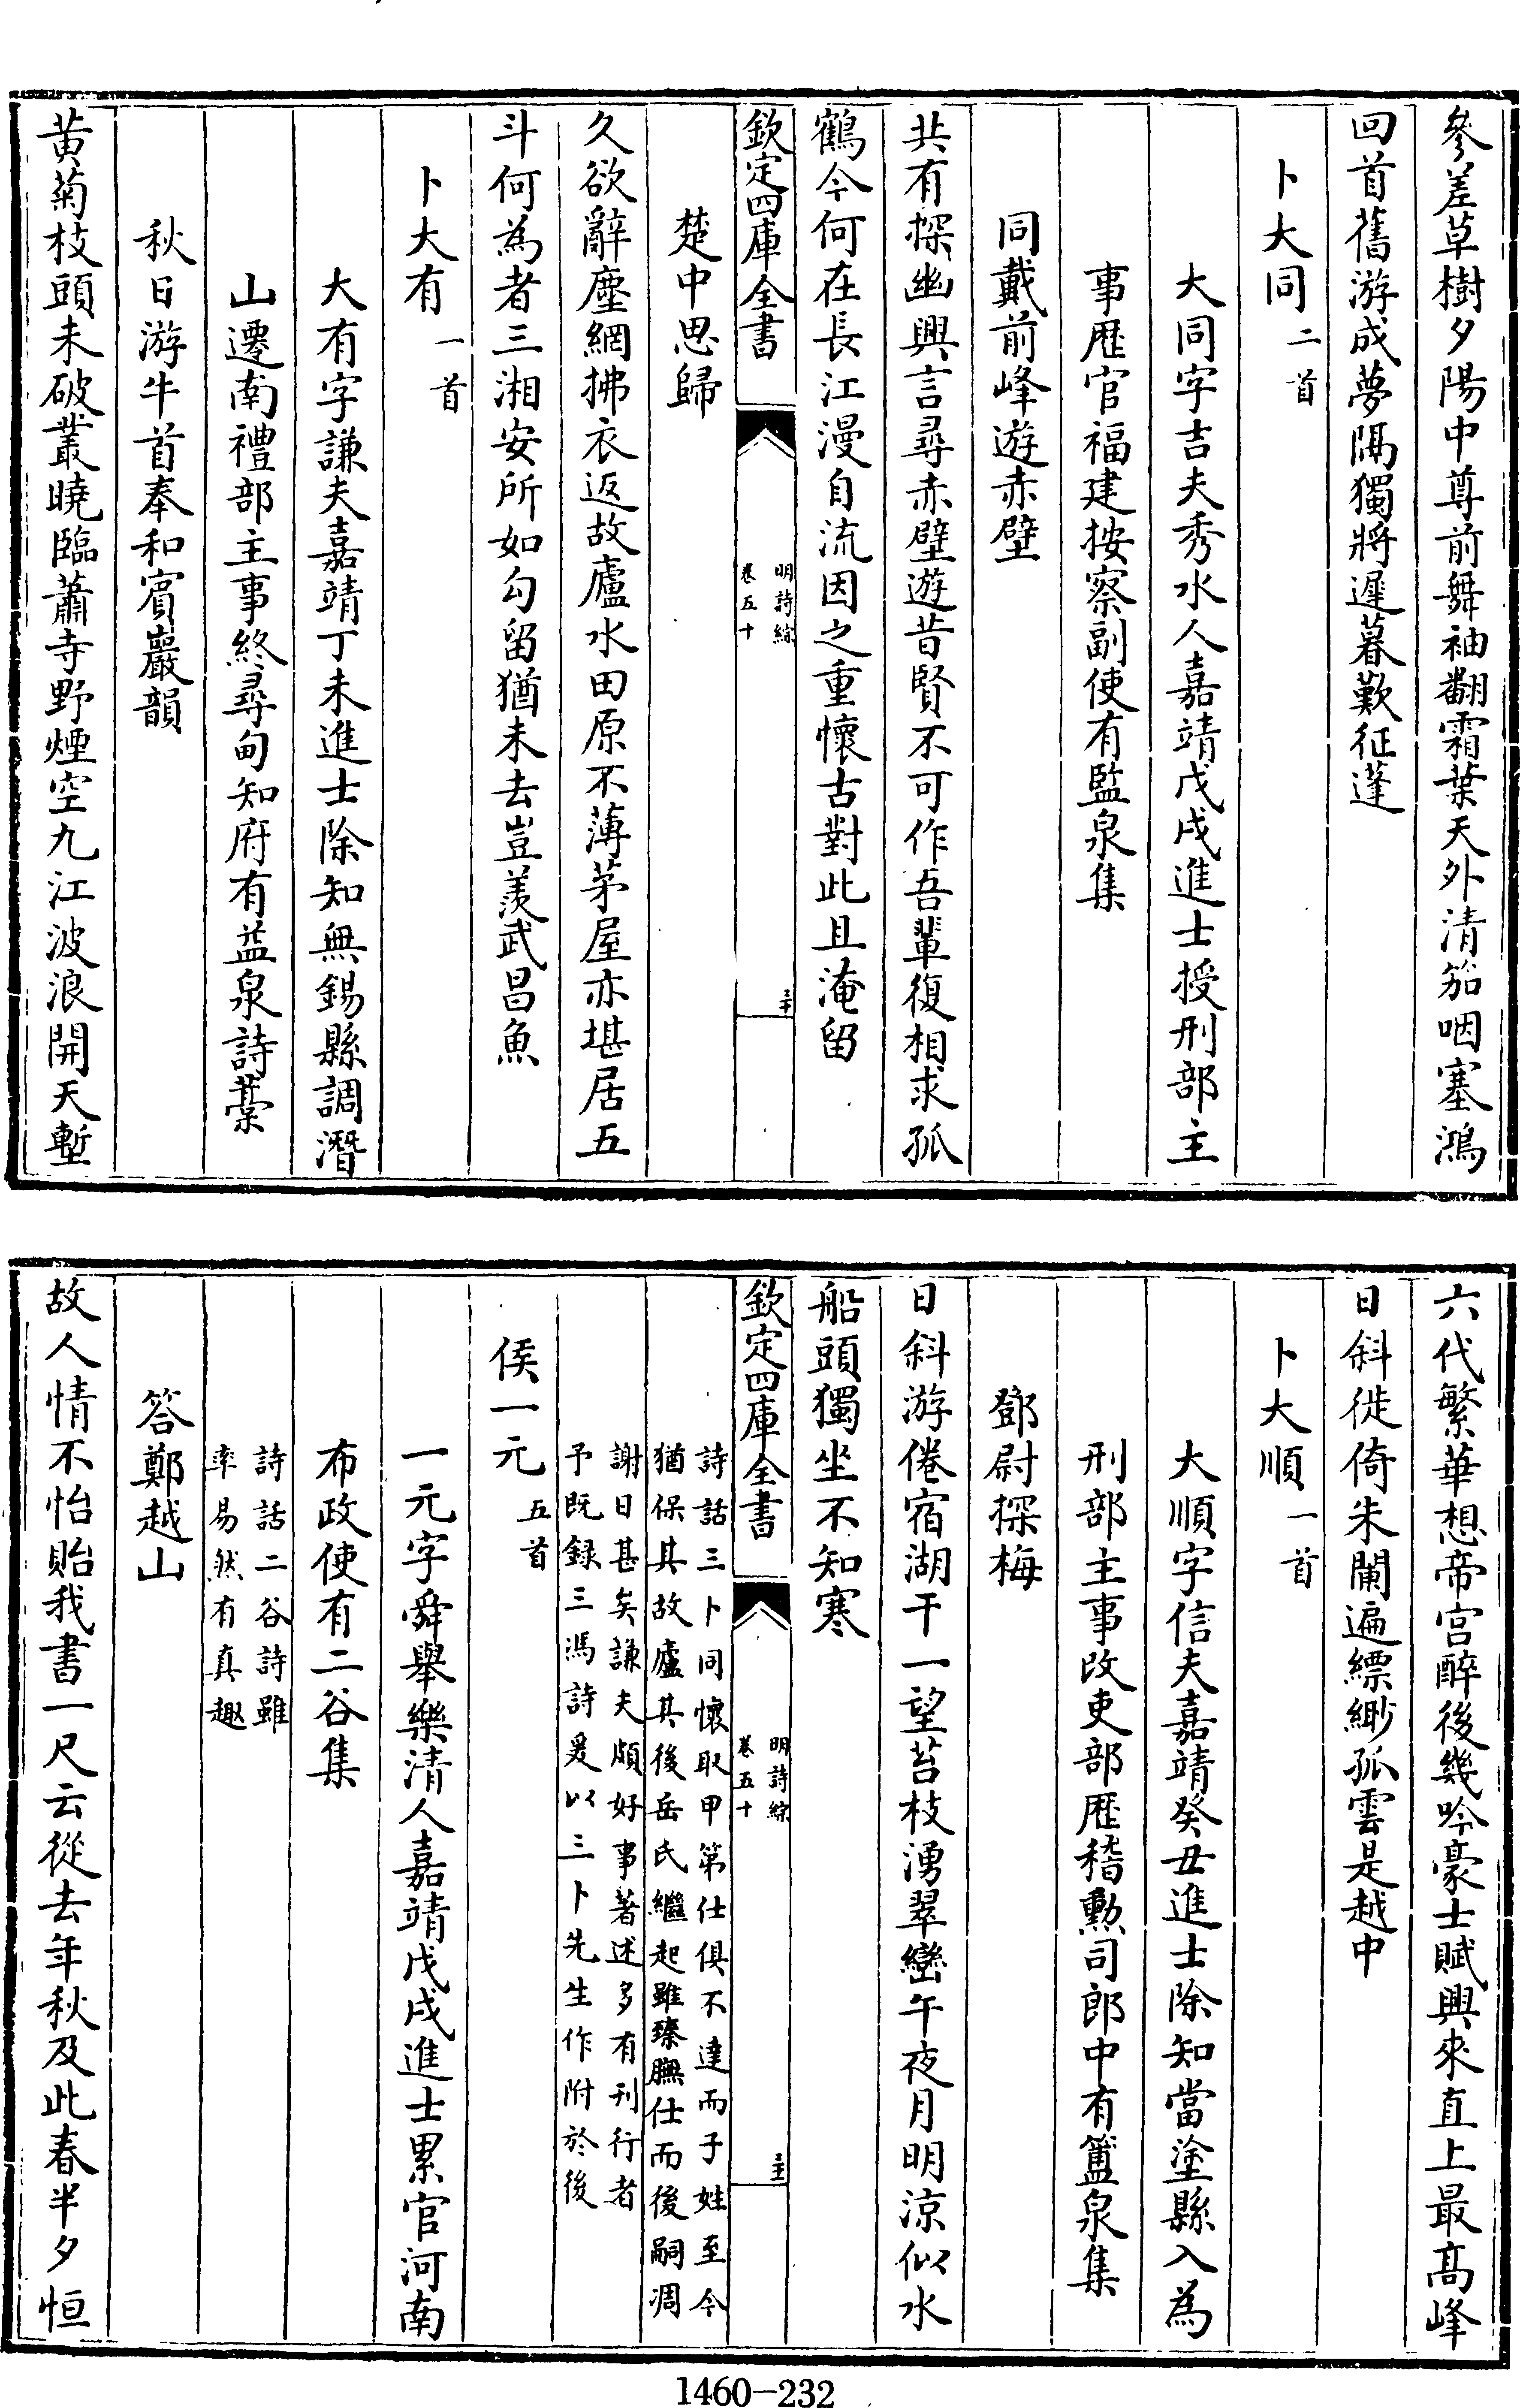 參差草樹夕陽中尊前舞袖翻霜葉天外清笳咽塞鴻
回首舊游成夢隔獨將遲暮歎征蓬
卜大同二首
大同字吉夫秀水人嘉靖戊戌進士授刑部主
事歷官福建按察副使有監泉集
同戴前峰遊赤壁
共有探幽興言尋赤壁遊昔賢不可作吾輩復相求孤
鶴今何在長江漫自流因之重懷古對此且淹留
欽定四庫全書
明詩綜
卷五十
三十
楚中思歸
久欲辭塵網拂衣返故廬水田原不薄茅屋亦堪居五
斗何為者三湘安所如勾留猶未去豈羨武昌魚
卜大有一首
大有字謙夫嘉靖丁未進士除知無錫縣調潛
山遷南禮部主事終尋甸知府有益泉詩藳
秋日游牛首奉和賓巖韻
黄菊枝頭未破叢曉臨蕭寺野煙空九江波浪開天塹
六代繁華想帝宫醉後幾吟豪士賦興來直上最髙峰
日斜徙倚朱闌遍縹緲孤雲是越中
卜大順一首
大順字信夫嘉靖癸丑進士除知當塗縣入為
刑部主事改吏部歷稽勲司郎中有簠泉集
鄧尉探梅
日斜游倦宿湖干一望苔枝湧翠巒午夜月明涼似水
船頭獨坐不知寒
欽定四庫全書
明詩綜
卷五十
三十一
詩話三卜同懷取甲第仕俱不達而子姓至今
猶保其故廬其後岳氏繼起雖臻膴仕而後嗣凋
謝日甚矣謙夫頗好事著述多有刊行者
予既録三馮詩爰以三卜先生作附於後
侯一元五首
一元字舜舉樂清人嘉靖戊戌進士累官河南
布政使有二谷集
詩話二谷詩雖
率易然有真趣
答鄭越山
故人情不怡貽我書一尺云從去年秋及此春半夕恒
1460-232